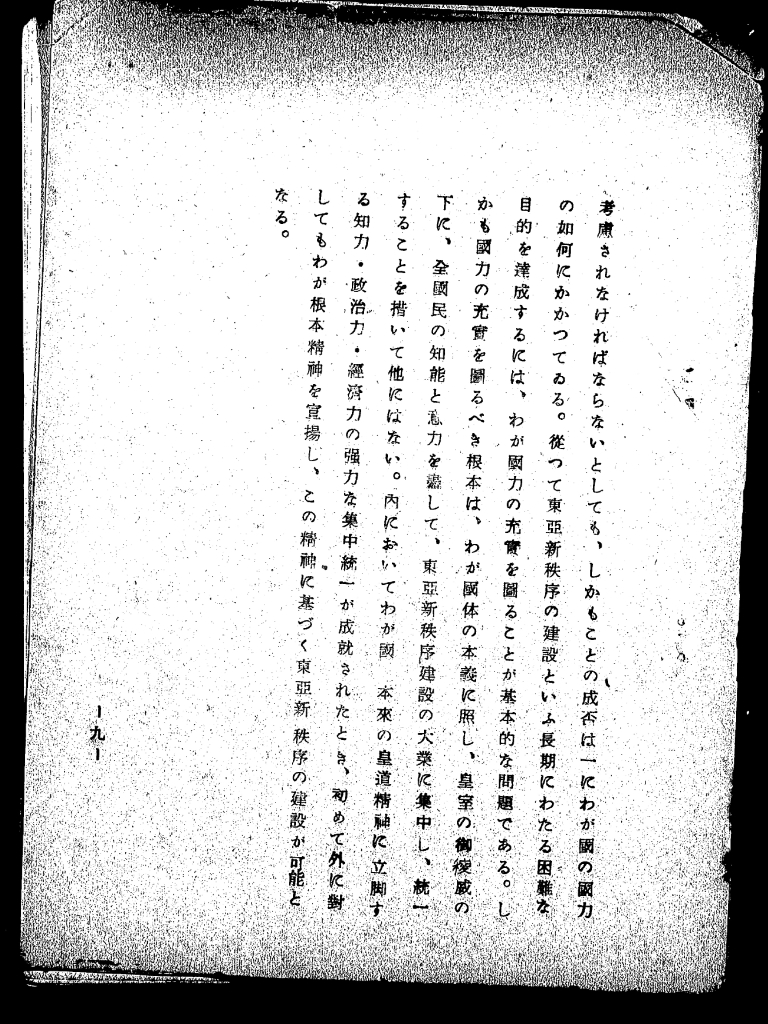 考慮されなければならないとしても、しかもことの成否は一にわが國の國力
の如何にかかつてゐる。從つて東亞新秩序の建設といふ長期にわたる困難な
目的を達成するには、わが國力の充實を圖ることが基本的な問題である。し
かも國力の充實を圖るべき根本は、わが國体の本義に照し、皇室の御稜威の
下に、全國民の知能と意力を盡して、東亞新秩序建設の大業に集中し、統一
することを措いて他にはない。內においてわが國 本來の皇道精神に立脚す
る知力・政治力・經濟力の强力な集中統一が成就されたとき、初めて外に對
してもわが根本精神を宣揚し、この精神に基づく東亞新秩序の建設が可能と
なる。
—九—